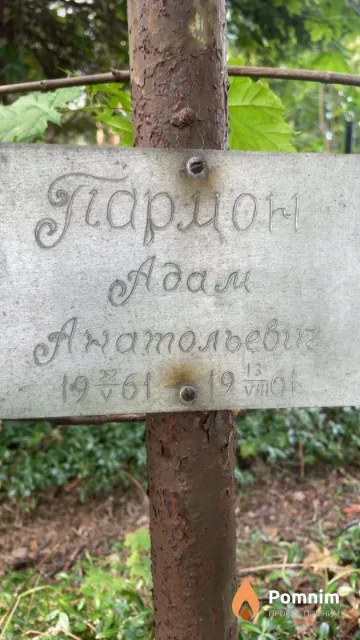 Пармон
Адам
Анатольевич
19 22/V 61 - 19 13/VIII 61
Pomnim